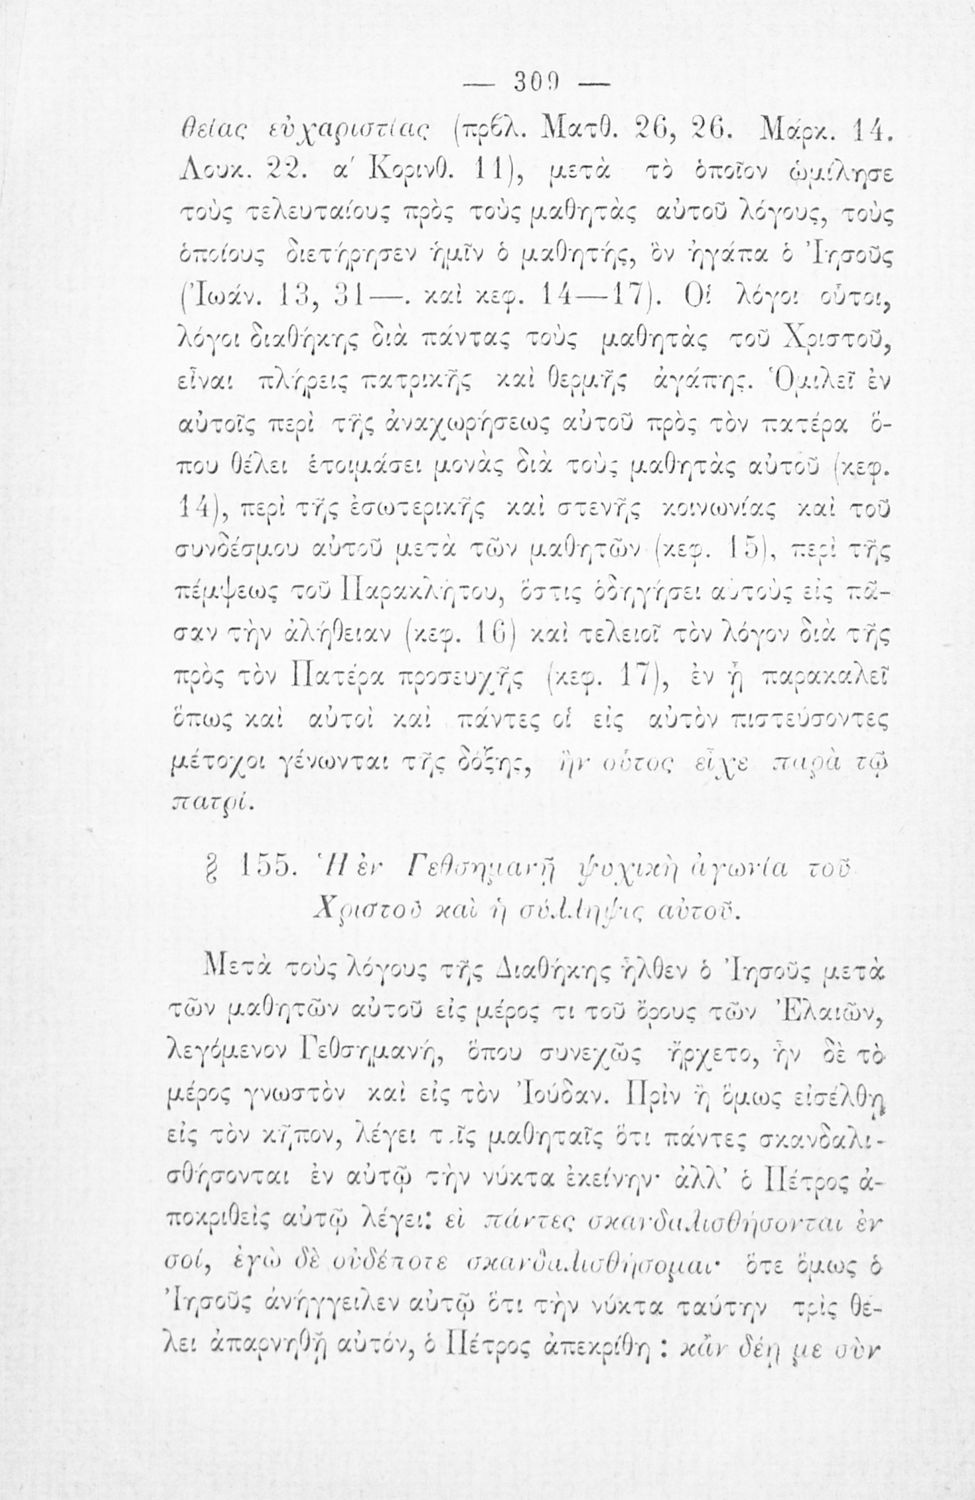 — 309 —
θείας εὐχαριστίας (πρβλ. Ματθ. 26, 26. Μάρκ. 14.
Λουκ. 22. α΄ Κορινθ. 11), μετὰ τὸ ὁποῖον ὡμίλησε
τοὺς τελευταίους πρὸς τοὺς μαθητὰς αὐτοῦ λόγους, τοὺς
ὁποίους διετήρησεν ἡμῖν ὁ μαθητής, ὃν ἠγάπα ὁ Ἰησοῦς
(Ἰωάν. 13, 31—. καὶ κεφ. 14—17). Οἱ λόγοι οὗτοι,
λόγοι διαθήκης διὰ πάντας τοὺς μαθητὰς τοῦ Χριστοῦ,
εἶναι πλήρεις πατρικῆς καὶ θερμῆς ἀγάπης. Ὁμιλεῖ ἐν
αὐτοῖς περὶ τῆς ἀναχωρήσεως αὐτοῦ πρὸς τὸν πατέρα ὅ-
που θέλει ἑτοιμάσει μονὰς διὰ τοὺς μαθητὰς αὐτοῦ (κεφ.
14), περὶ τῆς ἐσωτερικῆς καὶ στενῆς κοινωνίας καὶ τοῦ
συνδέσμου αὐτοῦ μετὰ τῶν μαθητῶν (κεφ. 15), περὶ τῆς
πέμψεως τοῦ Παρακλήτου, ὅστις ὁδηγήσει αὐτοὺς εἰς πᾶ-
σαν τὴν ἀλήθειαν (κεφ. 16) καὶ τελειοῖ τὸν λόγον διὰ τῆς
πρὸς τὸν Πατέρα προσευχῆς (κεφ. 17), ἐν ᾗ παρακαλεῖ
ὅπως καὶ αὐτοὶ καὶ πάντες οἱ εἰς αὐτὸν πιστεύσοντες
μέτοχοι γένωνται τῆς δόξης, ἣν οὗτος εἶχε παρὰ τῷ
πατρί.
§ 155. Ἡ ἐν Γεθσημανῇ ψυχικὴ ἀγωνία τοῦ
Χριστοῦ καὶ ἡ σύλληψις αὐτοῦ.
Μετὰ τοὺς λόγους τῆς Διαθήκης ἦλθεν ὁ Ἰησοῦς μετὰ
τῶν μαθητῶν αὐτοῦ εἰς μέρος τι τοῦ ὄρους τῶν Ἐλαιῶν,
λεγόμενον Γεθσημανή, ὅπου συνεχῶς ἤρχετο, ἦν δὲ τὸ
μέρος γνωστὸν καὶ εἰς τὸν Ἰούδαν. Πρὶν ἢ ὅμως εἰσέλθῃ
εἰς τὸν κῆπον, λέγει τοῖς μαθηταῖς ὅτι πάντες σκανδαλι-
σθήσονται ἐν αὐτῷ τὴν νύκτα ἐκείνην· ἀλλ’ ὁ Πέτρος ἀ-
ποκριθεὶς αὐτῷ λέγει: εἰ πάντες σκανδαλισθήσονται ἐν
σοί, ἐγὼ δὲ οὐδέποτε σκανδαλισθήσομαι· ὅτε ὅμως ὁ
Ἰησοῦς ἀνήγγειλεν αὐτῷ ὅτι τὴν νύκτα ταύτην τρὶς θέ-
λει ἀπαρνηθῇ αὐτόν, ὁ Πέτρος ἀπεκρίθη : κἂν δέῃ με σὺν